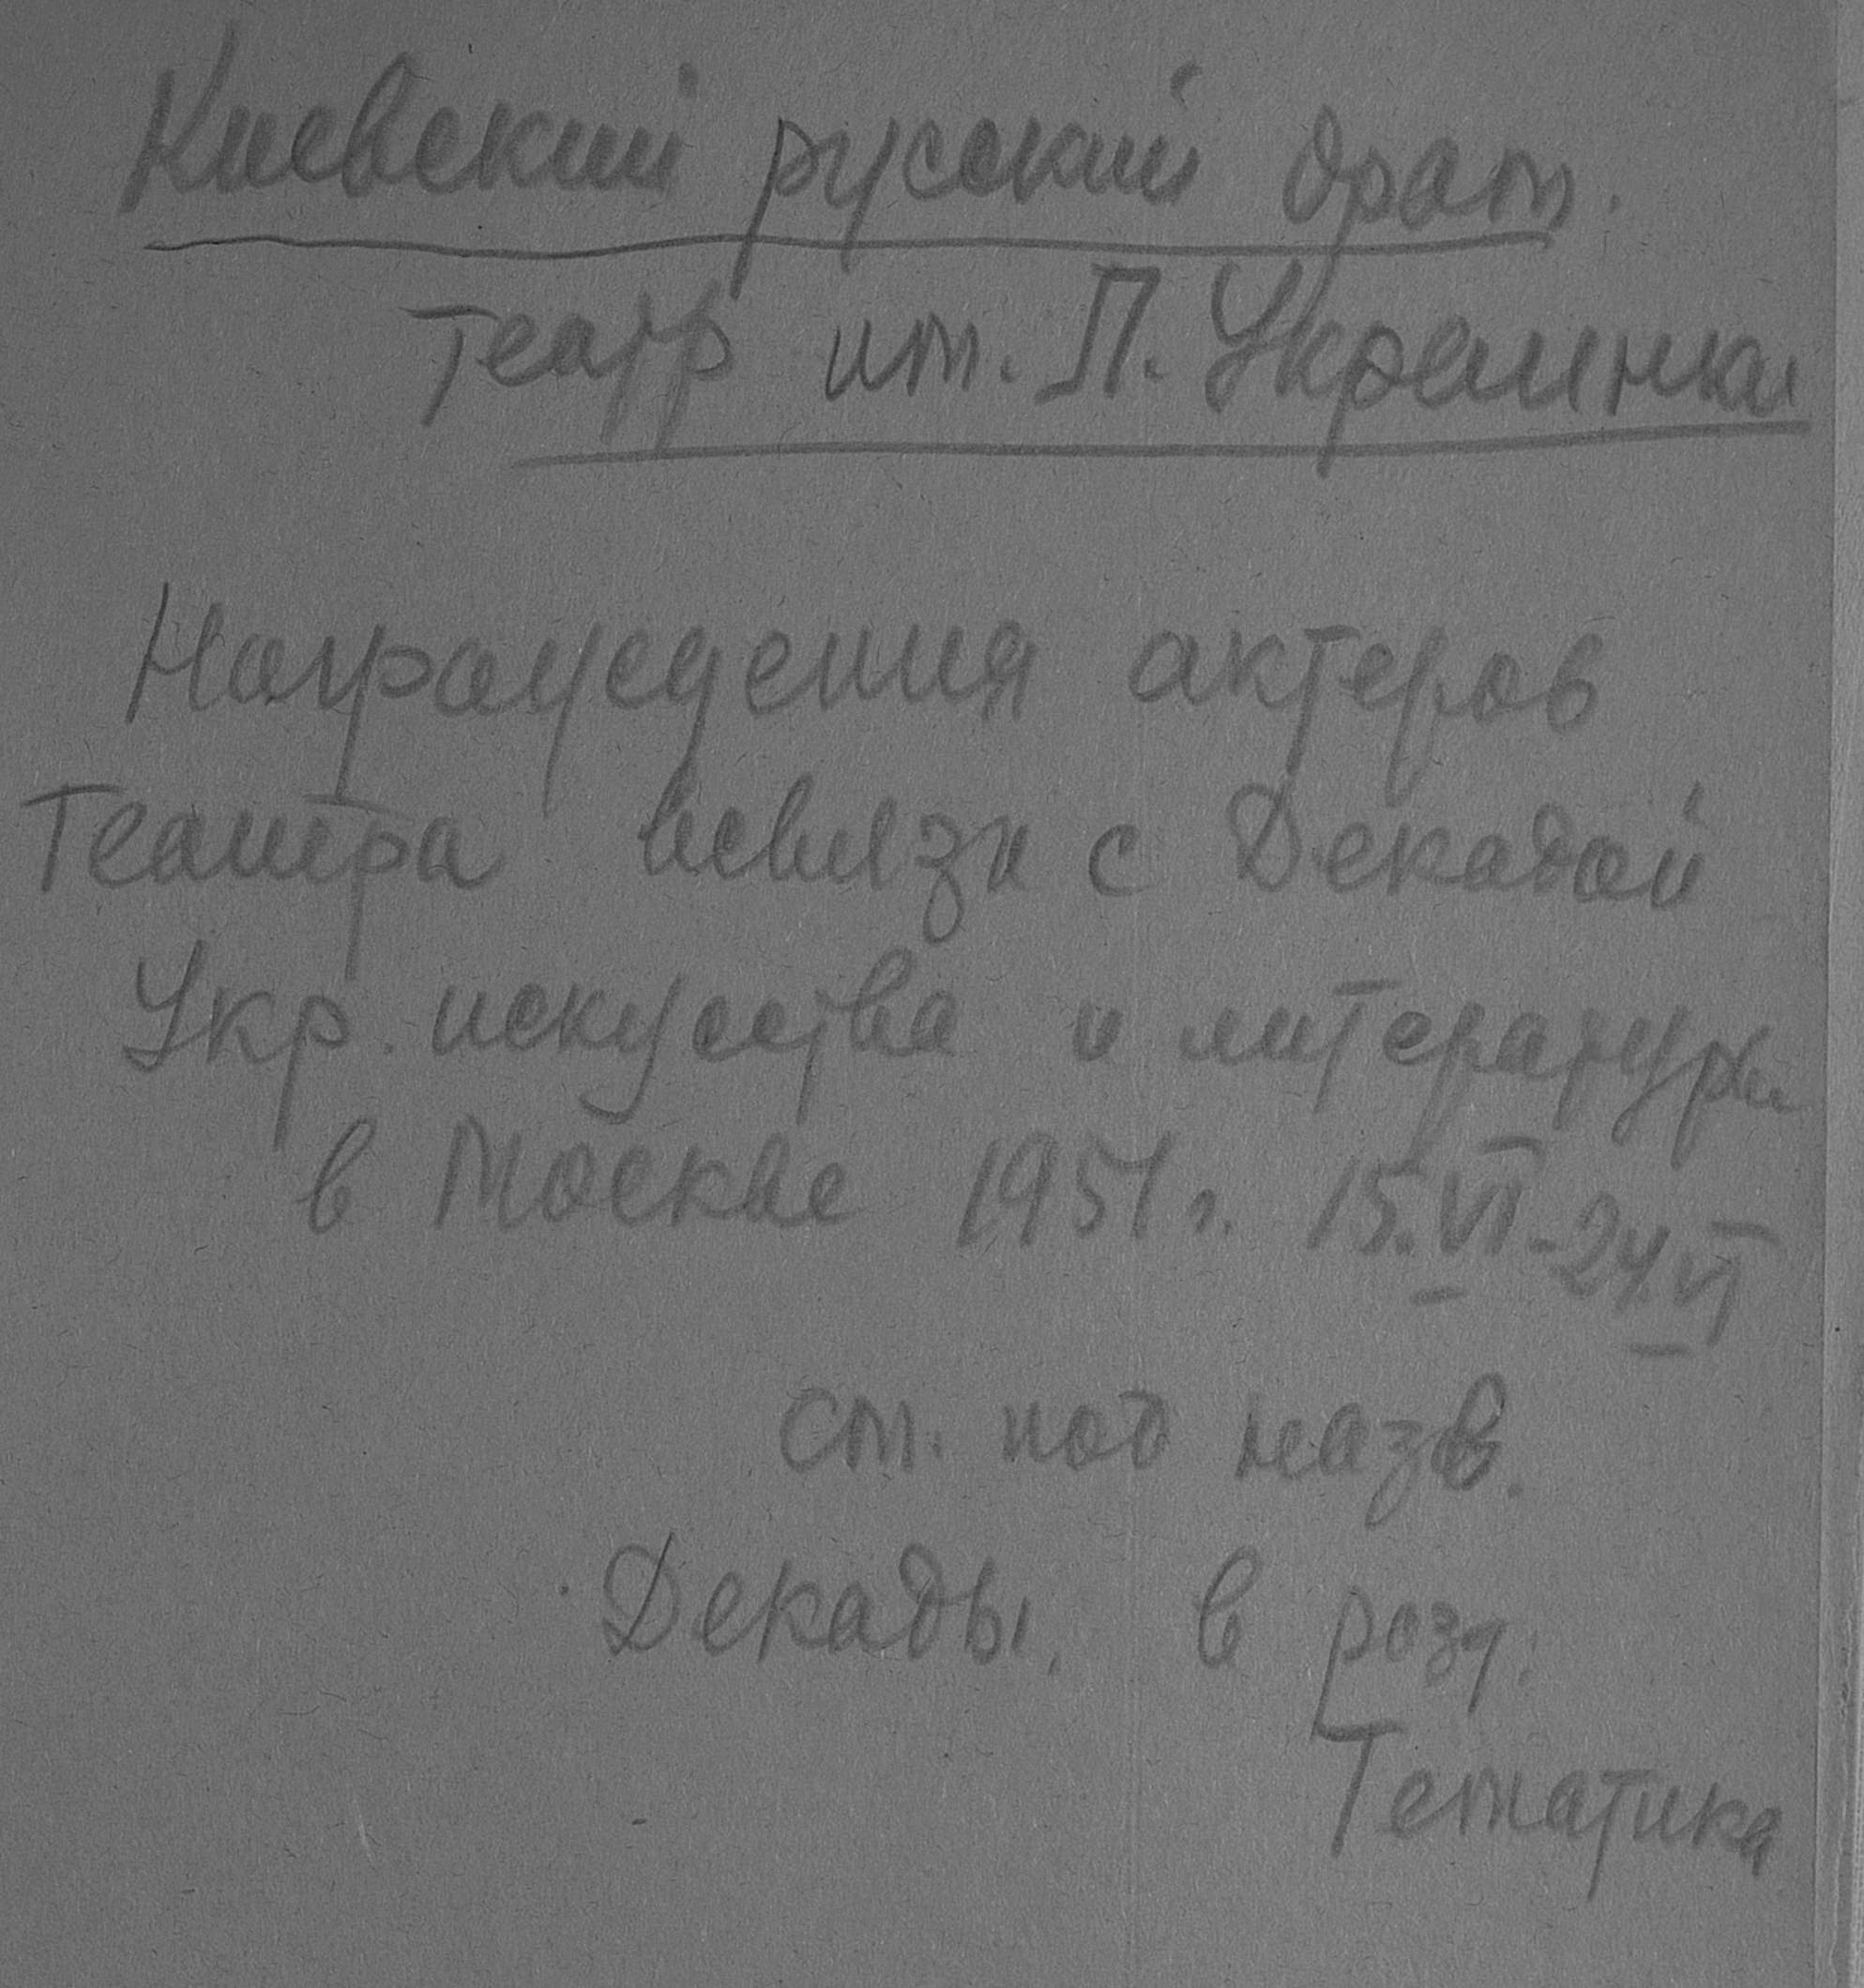 Киевский русский драм.
театр им. Л. Украинки
Награждения актеров
театра всвязи с Декадой
Укр. искусства и литературы
в Москве 1951 г. 15.VI-24.VI
см. под назв.
Декады. в розд.
Тематика